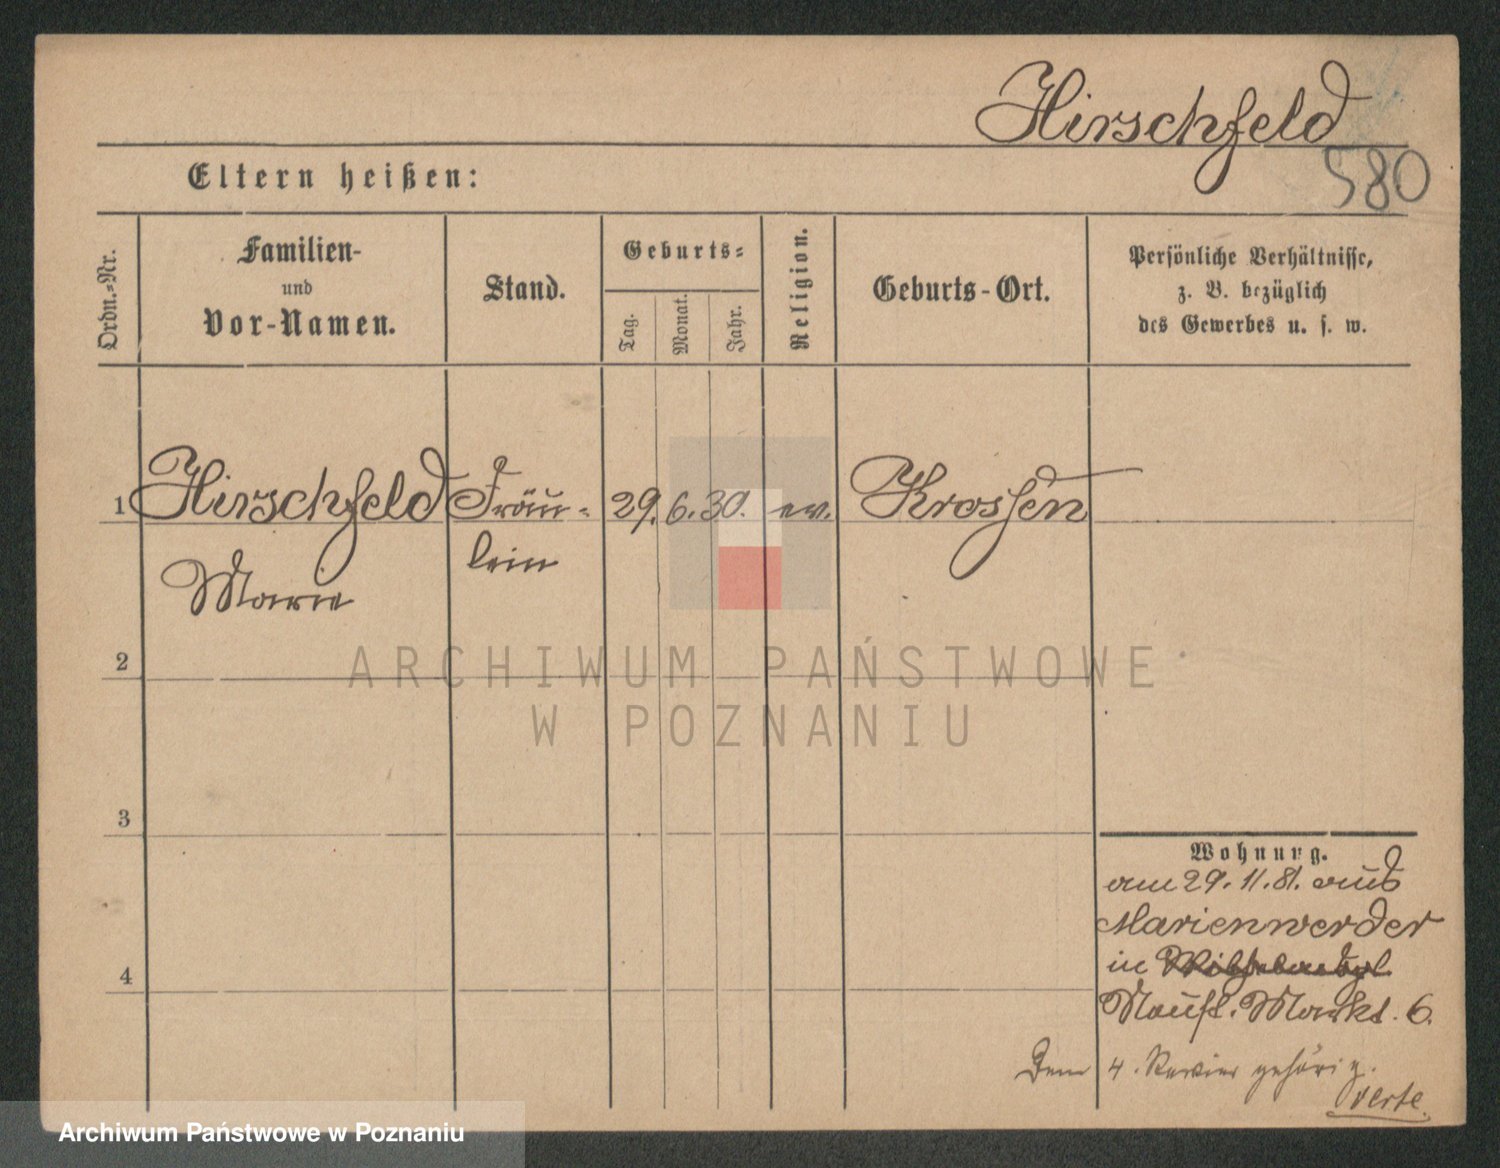 Hirschfeld
580
Eltern heißen:
Ordn.-Nr.
Familien-
und
Vor-Namen.
Stand.
Geburts-
Tag.
Monat.
Jahr.
Religion.
Geburts-Ort.
Persönliche Verhältnisse,
z. B. bezüglich
des Gewerbes u. s. w.
1 Hirschfeld Fräu- 29. 6. 30. ev. Krossen
lein
Marie
2
ARCHIWUM PAŃSTWOWE
W POZNANIU
3
4
Wohnung.
am 29. 11. 81. aus
Marienwerder
in
Neust. Markt. 6.
Dem 4. Revier gehörig.
verte.
Archiwum Państwowe w Poznaniu